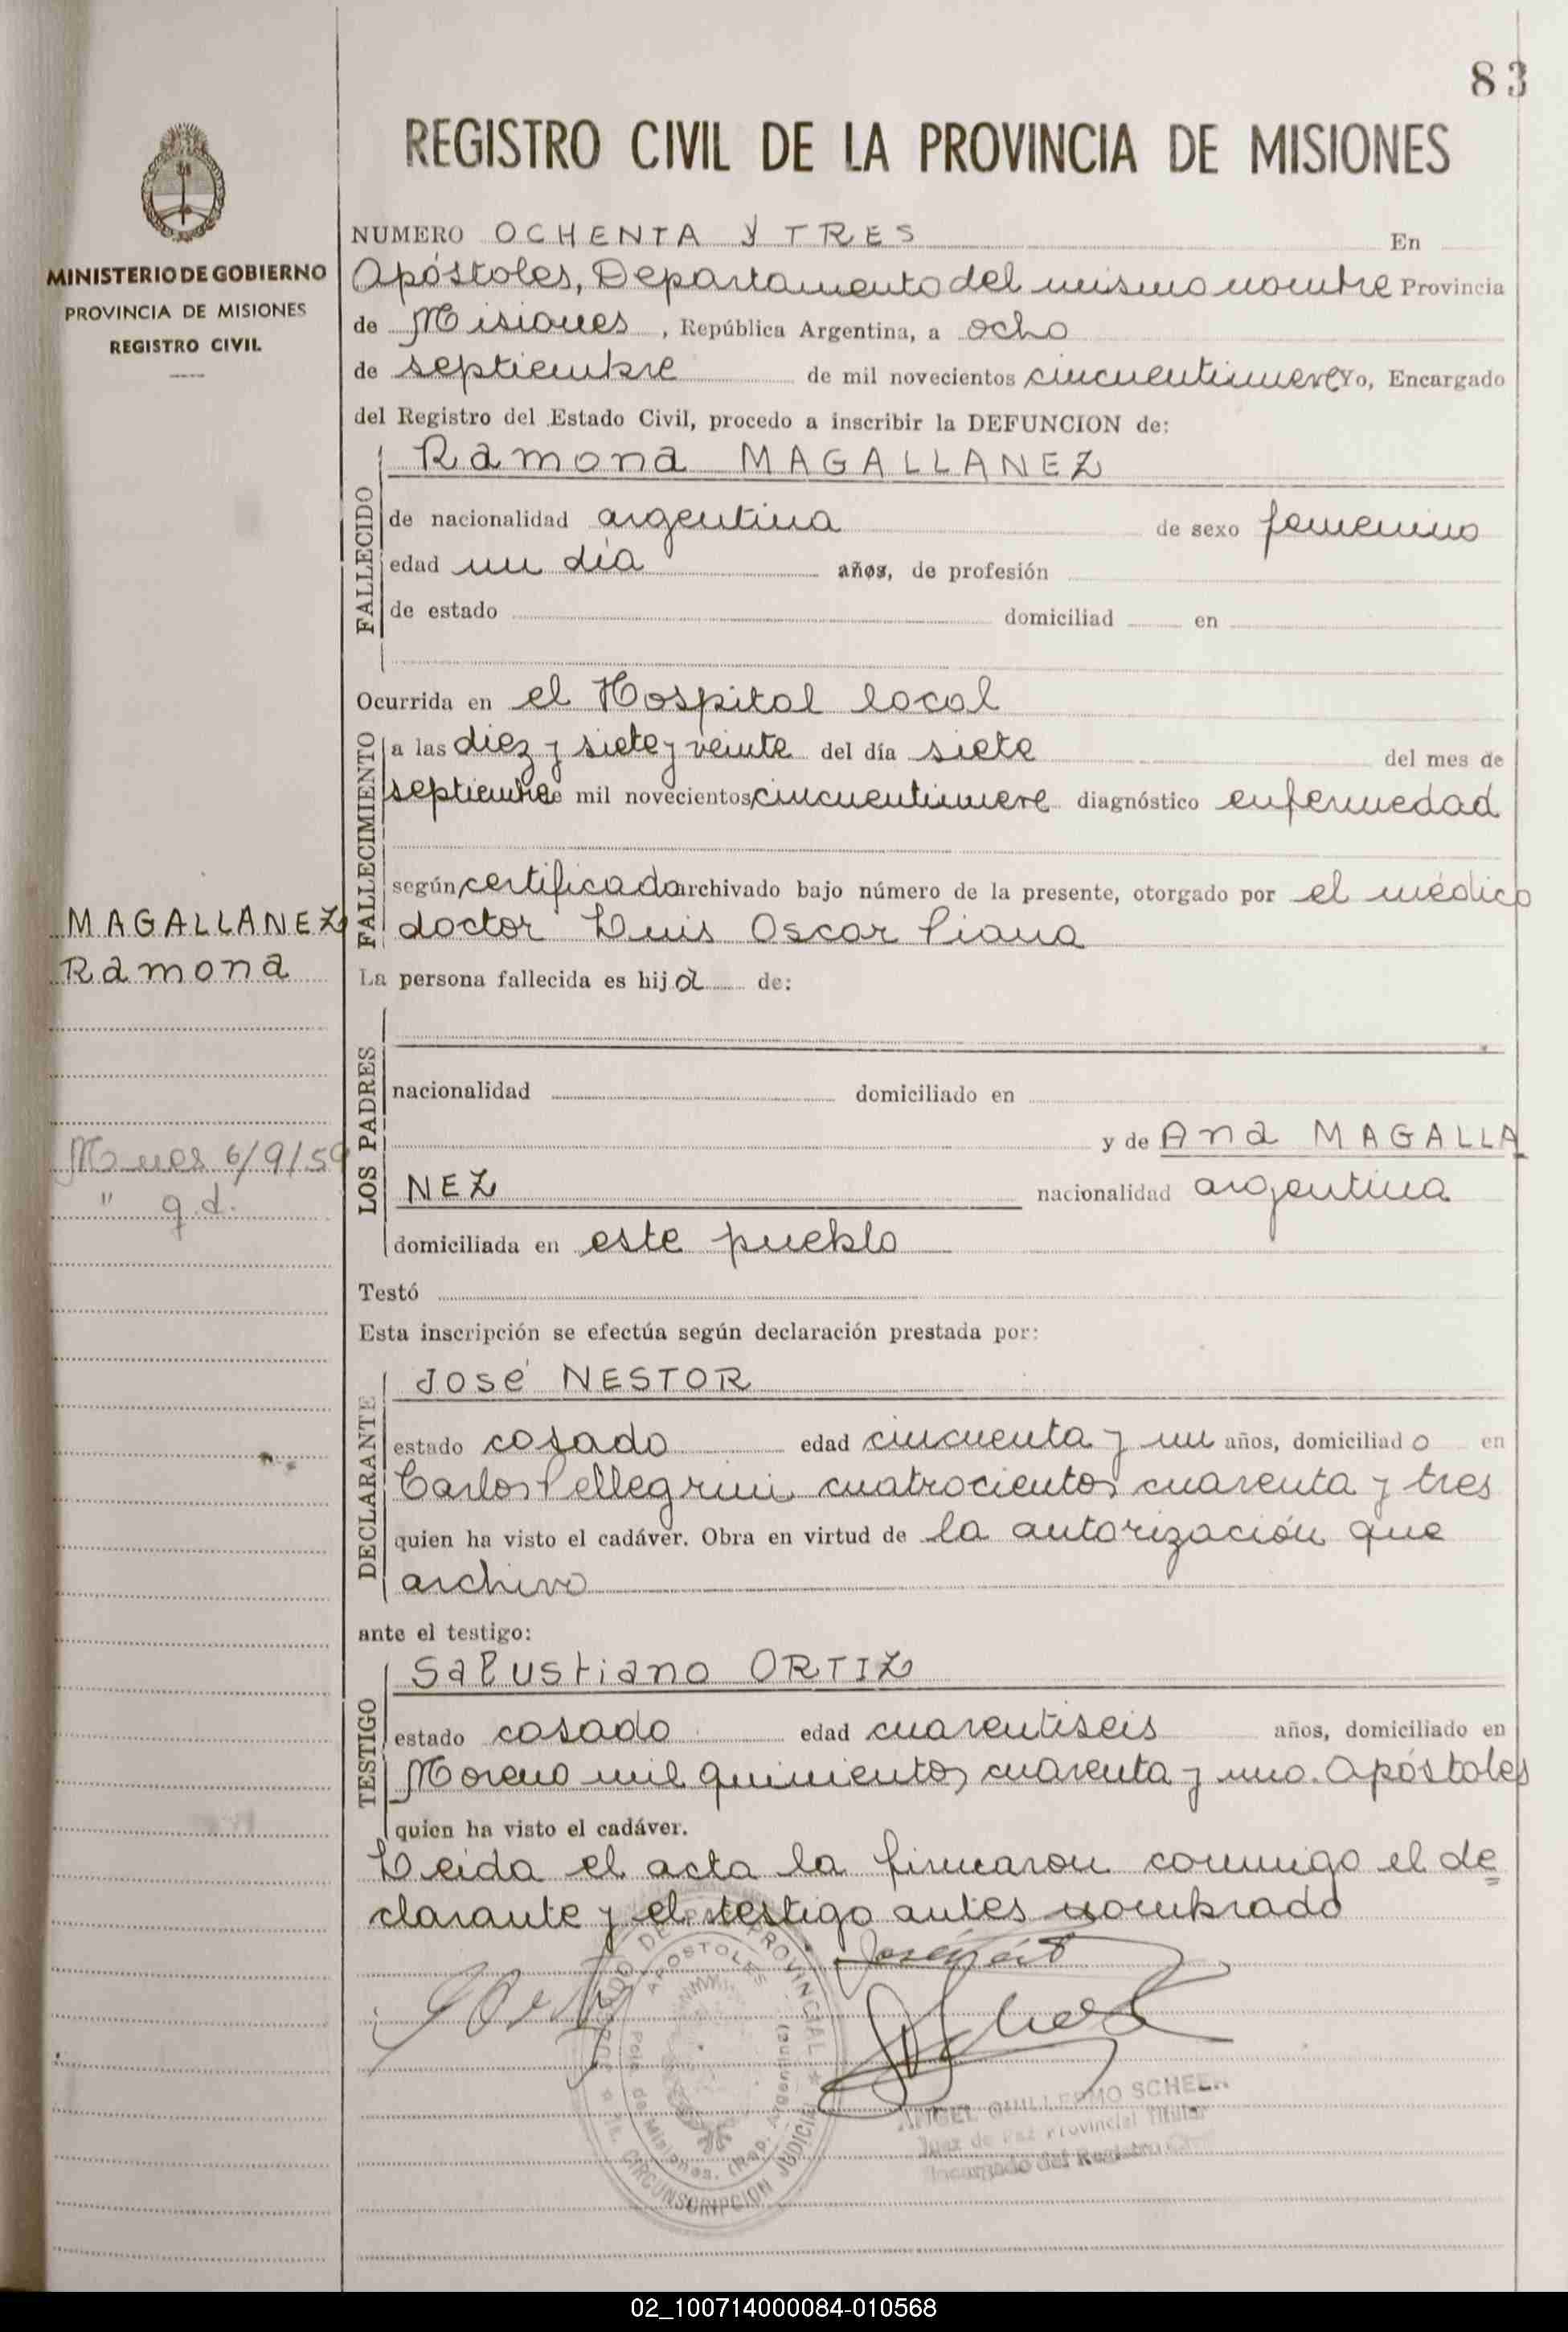 83
REGISTRO CIVIL DE LA PROVINCIA DE MISIONES
MINISTERIO DE GOBIERNO
PROVINCIA DE MISIONES
REGISTRO CIVIL
NUMERO OCHENTA Y TRES En
Apóstoles, Departamento del mismo nombre Provincia
de Misiones, República Argentina, a ocho
de septiembre de mil novecientos cincuentinueve Yo, Encargado
del Registro del Estado Civil, procedo a inscribir la DEFUNCION de:
FALLECIDO
Ramona MAGALLANEZ
de nacionalidad argentina de sexo femenino
edad un día años, de profesión
de estado domiciliad en
Ocurrida en el Hospital local
FALLECIMIENTO
a las diez y siete y veinte del día siete del mes de
septiembre mil novecientos cincuentinueve diagnóstico enfermedad
según certificado archivado bajo número de la presente, otorgado por el médico
doctor Luis Oscar Piana
MAGALLANEZ
Ramona
La persona fallecida es hija de:
LOS PADRES
nacionalidad domiciliado en
y de Ana MAGALLA
NEZ nacionalidad argentina
domiciliada en este pueblo
6/9/59
" g.d.
Testó
Esta inscripción se efectúa según declaración prestada por:
DECLARANTE
José NESTOR
estado casado edad cincuenta y un años, domiciliado en
Carlos Pellegrini cuatrocientos cuarenta y tres
quien ha visto el cadáver. Obra en virtud de la autorización que
archivo
ante el testigo:
TESTIGO
Salustiano ORTIZ
estado casado edad cuarentiseis años, domiciliado en
Moreno mil quinientos cuarenta y uno. Apóstoles
quien ha visto el cadáver.
Leida el acta la firmaron conmigo el de
clarante y el testigo antes nombrado
JUZGADO DE PAZ PROVINCIAL
APOSTOLES
Pcia. de Misiones. (Rep. Argentina)
CIRCUNSCRIPCION JUDICIAL
ANGEL GUILLERMO SCHEER
Juez de Paz Provincial Titular
Encargado del Registro Civil
02_100714000084-010568